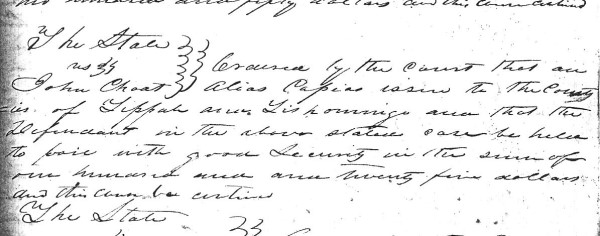 hundred and fifty dollars and this cause continued
The State
vs
John Choat
Ordered by the court that an
Alias Capias issue to the County
ies of Tippah and Tishomingo and that the
Defendant in the above stated case be held
to bail with good Security in the sum of
one hundred and twenty five dollars
and this cause be continued
The State